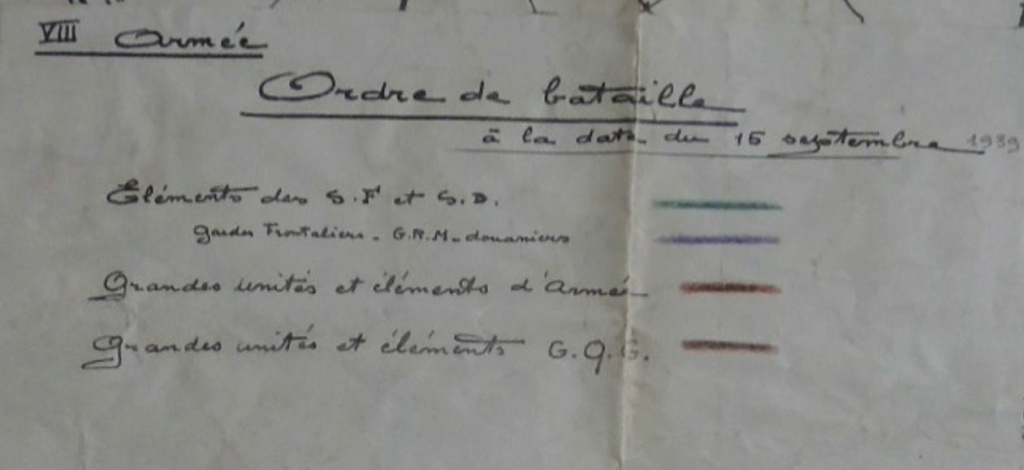 VIII Armée
Ordre de bataille
à la date du 15 septembre 1939
Eléments des S.F et S.D.
Gardes Frontaliers - G.R.M - douaniers
Grandes unités et éléments d'Armée
Grandes unités et éléments G.Q.G.